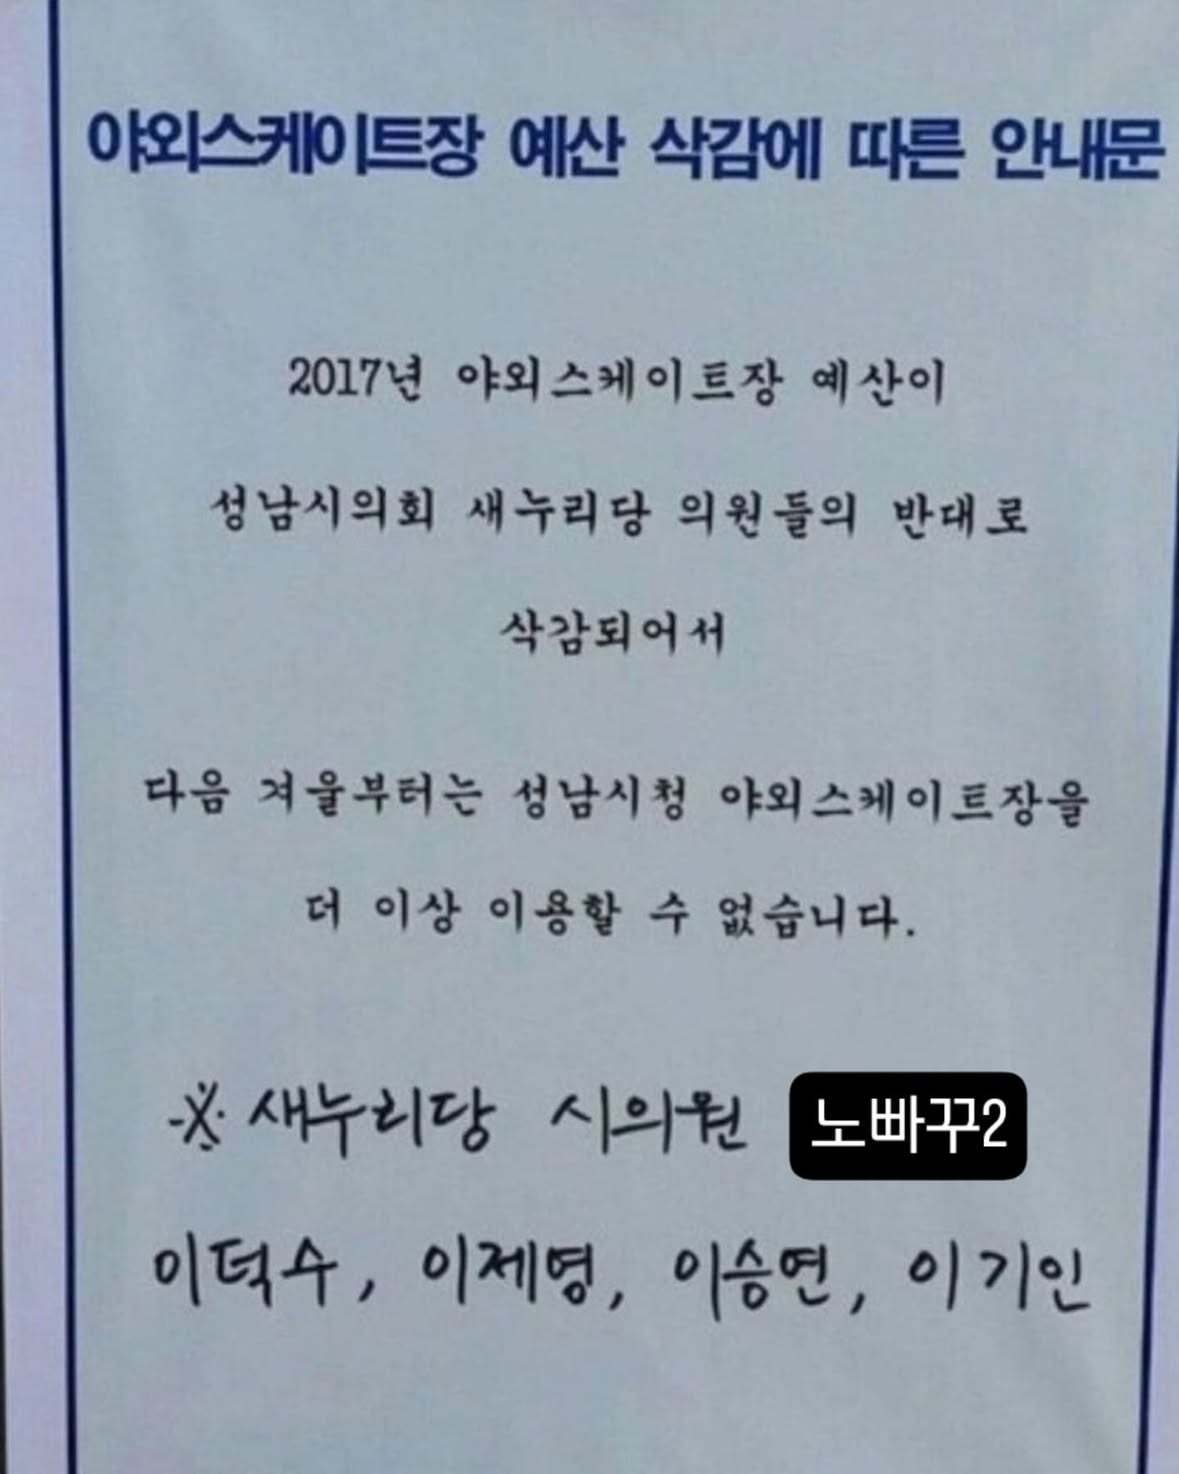 야외스케이트장 예산 삭감에 따른 안내문
2017년 야외스케이트장 예산이
성남시의회 새누리당 의원들의 반대로
삭감되어서
다음 겨울부터는 성남시청 야외스케이트장을
더 이상 이용할 수 없습니다.
※ 새누리당 시의원 노빠꾸2
이덕수, 이제영, 이승연, 이기인